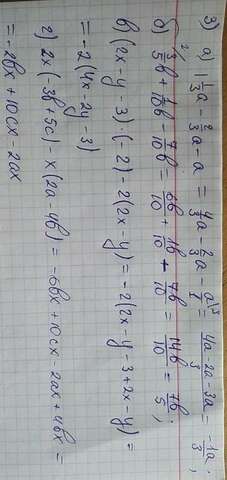 3) а) 1 1/3 a - 2/3 a - a = 4/3 a - 2/3 a - a/1 \3 = (4a - 2a - 3a)/3 = -1a/3;
б) 3/5 \2 b + 1/10 b - 7/10 b = 6b/10 + 1b/10 + 7b/10 = 14b/10 = 7b/5;
в) (2x - y - 3) · (-2) - 2(2x - y) = -2(2x - y - 3 + 2x - y) =
= -2(4x - 2y - 3)
г) 2x(-3b + 5c) - x(2a - 4b) = -6bx + 10cx - 2ax + 4bx =
= -2bx + 10cx - 2ax